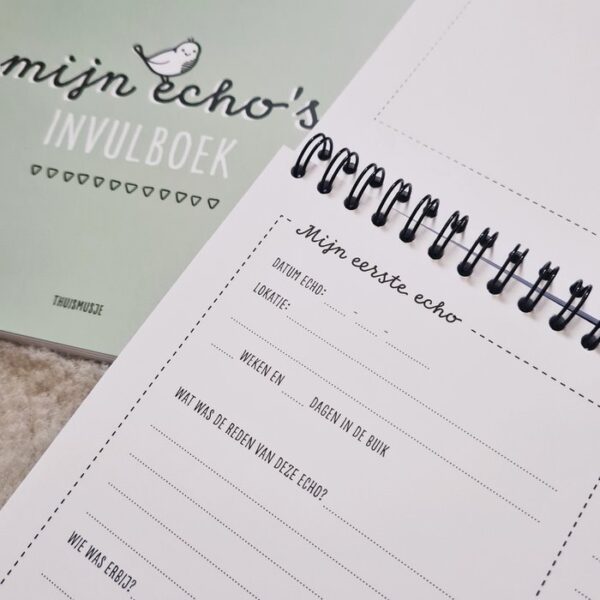 mijn echo's
INVULBOEK
THUISMUSJE
Mijn eerste echo
DATUM ECHO:
LOKATIE:
WEKEN EN DAGEN IN DE BUIK
WAT WAS DE REDEN VAN DEZE ECHO?
WIE WAS ERBIJ?